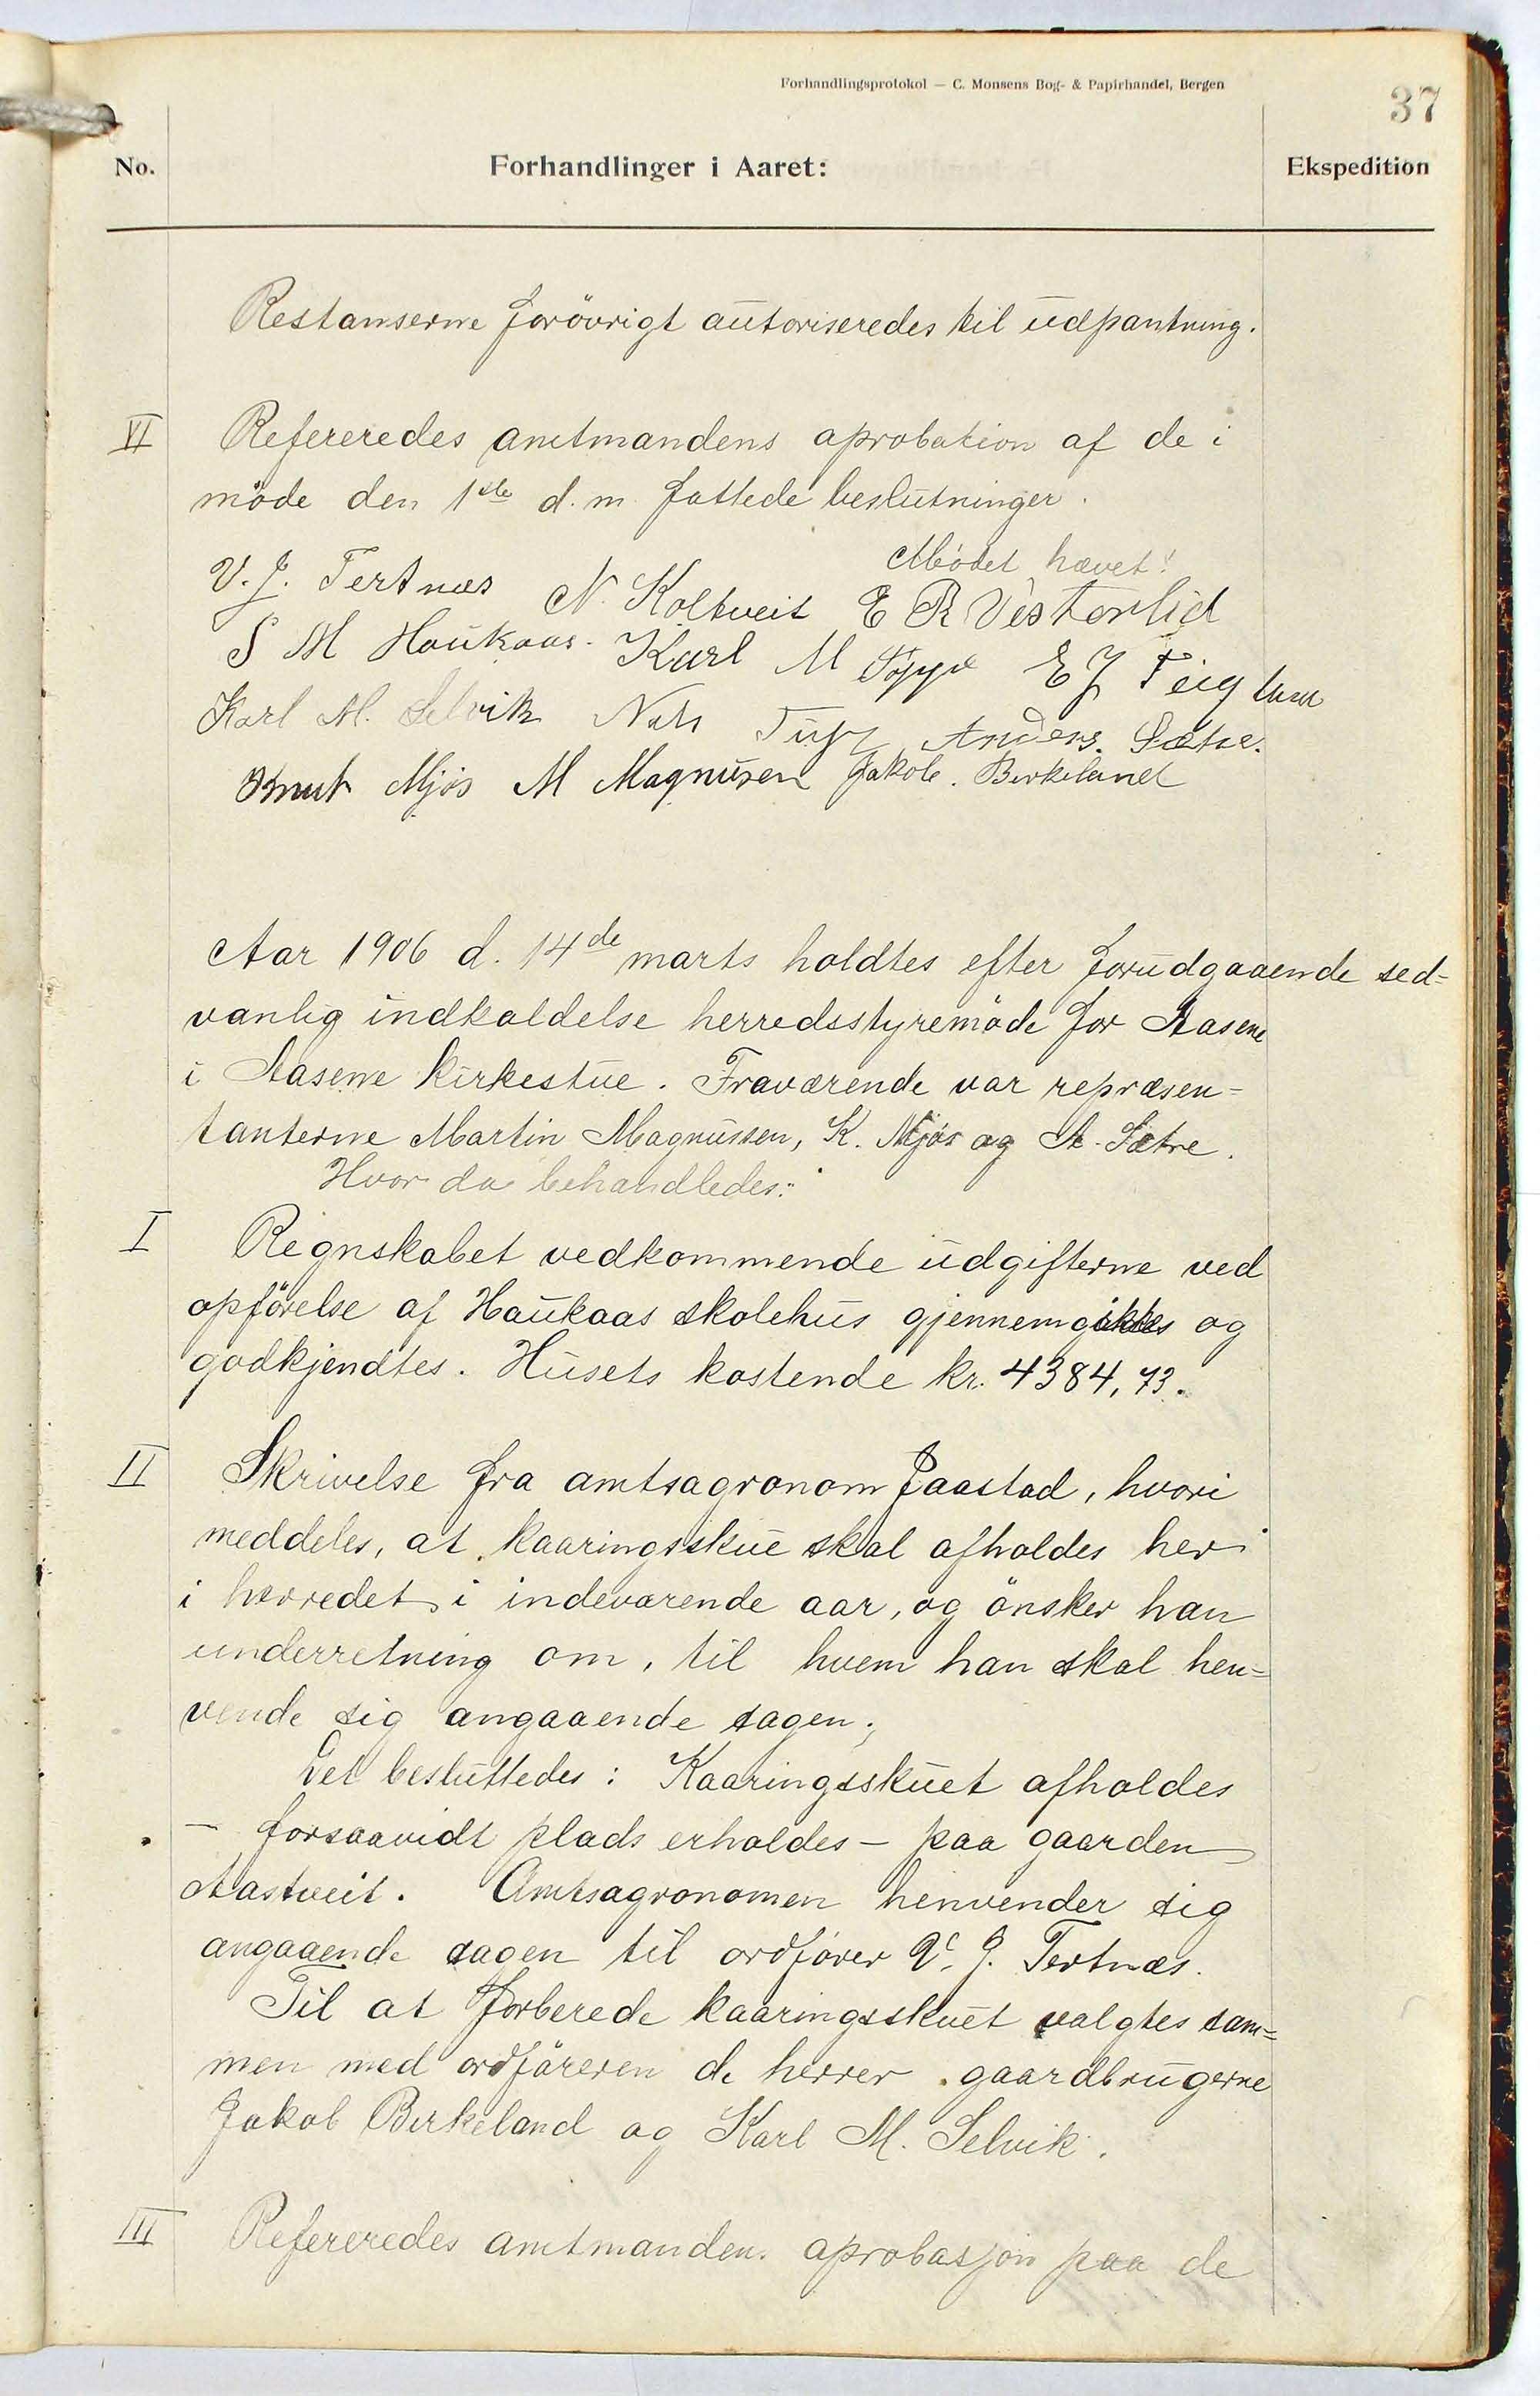 Forhandlingsprotokol — C. Monsens Bog- & Papirhandel, Bergen
37
No. Forhandlinger i Aaret: Ekspedition
Restanserne forövrigt autoriseredes til udpantning.
VI Refereredes amtmandens aprobation af de i
möde den 1ste d. m. fattede beslutninger.
Mödet hævet!
V. J. Tertnæs N. Koltveit E R Vesterlid
S M Haukaas. Karl M E J Teigland
Karl M. Selvik Nils Anders. Sætre.
Knut Mjös M Magnusen Jakob. Birkeland
Aar 1906 d. 14de marts holdtes efter forudgaaende sed=
vanlig indkaldelse herredsstyremöde for Aasene
i Aasene kirkestue. Fraværende var repræsen=
tanterne Martin Magnussen, K. Mjös og A. Sætre.
Hvor da behandledes:
I Regnskabet vedkommende udgifterne ved
opförelse af Haukaas skolehus gjennemgikkes og
godkjendtes. Husets kostende kr. 4384,73.
II Skrivelse fra amtsagronom Jaastad, hvori
meddeles, at kaaringsskue skal afholdes her
i herredet i indeværende aar, og önsker han
underretning om, til hvem han skal hen=
vende sig angaaende sagen;
Det besluttedes: Kaaringsskuet afholdes
— forsaavidt plads erholdes — paa gaarden
Aastveit. Amtsagronomen henvender sig
angaaende sagen til ordförer V. J. Tertnæs.
Til at forberede kaaringsskuet valgtes sam=
men med ordföreren de herrer gaardbrugerne
Jakob Birkeland og Karl M. Selvik.
III Refereredes amtmanden. aprobasjon paa de